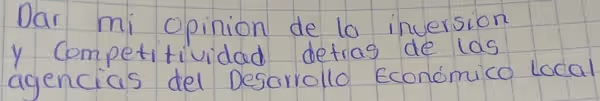 Dar mi opinion de la inversion
y Competitividad detras de las
agencias del Desarrollo Económico Local